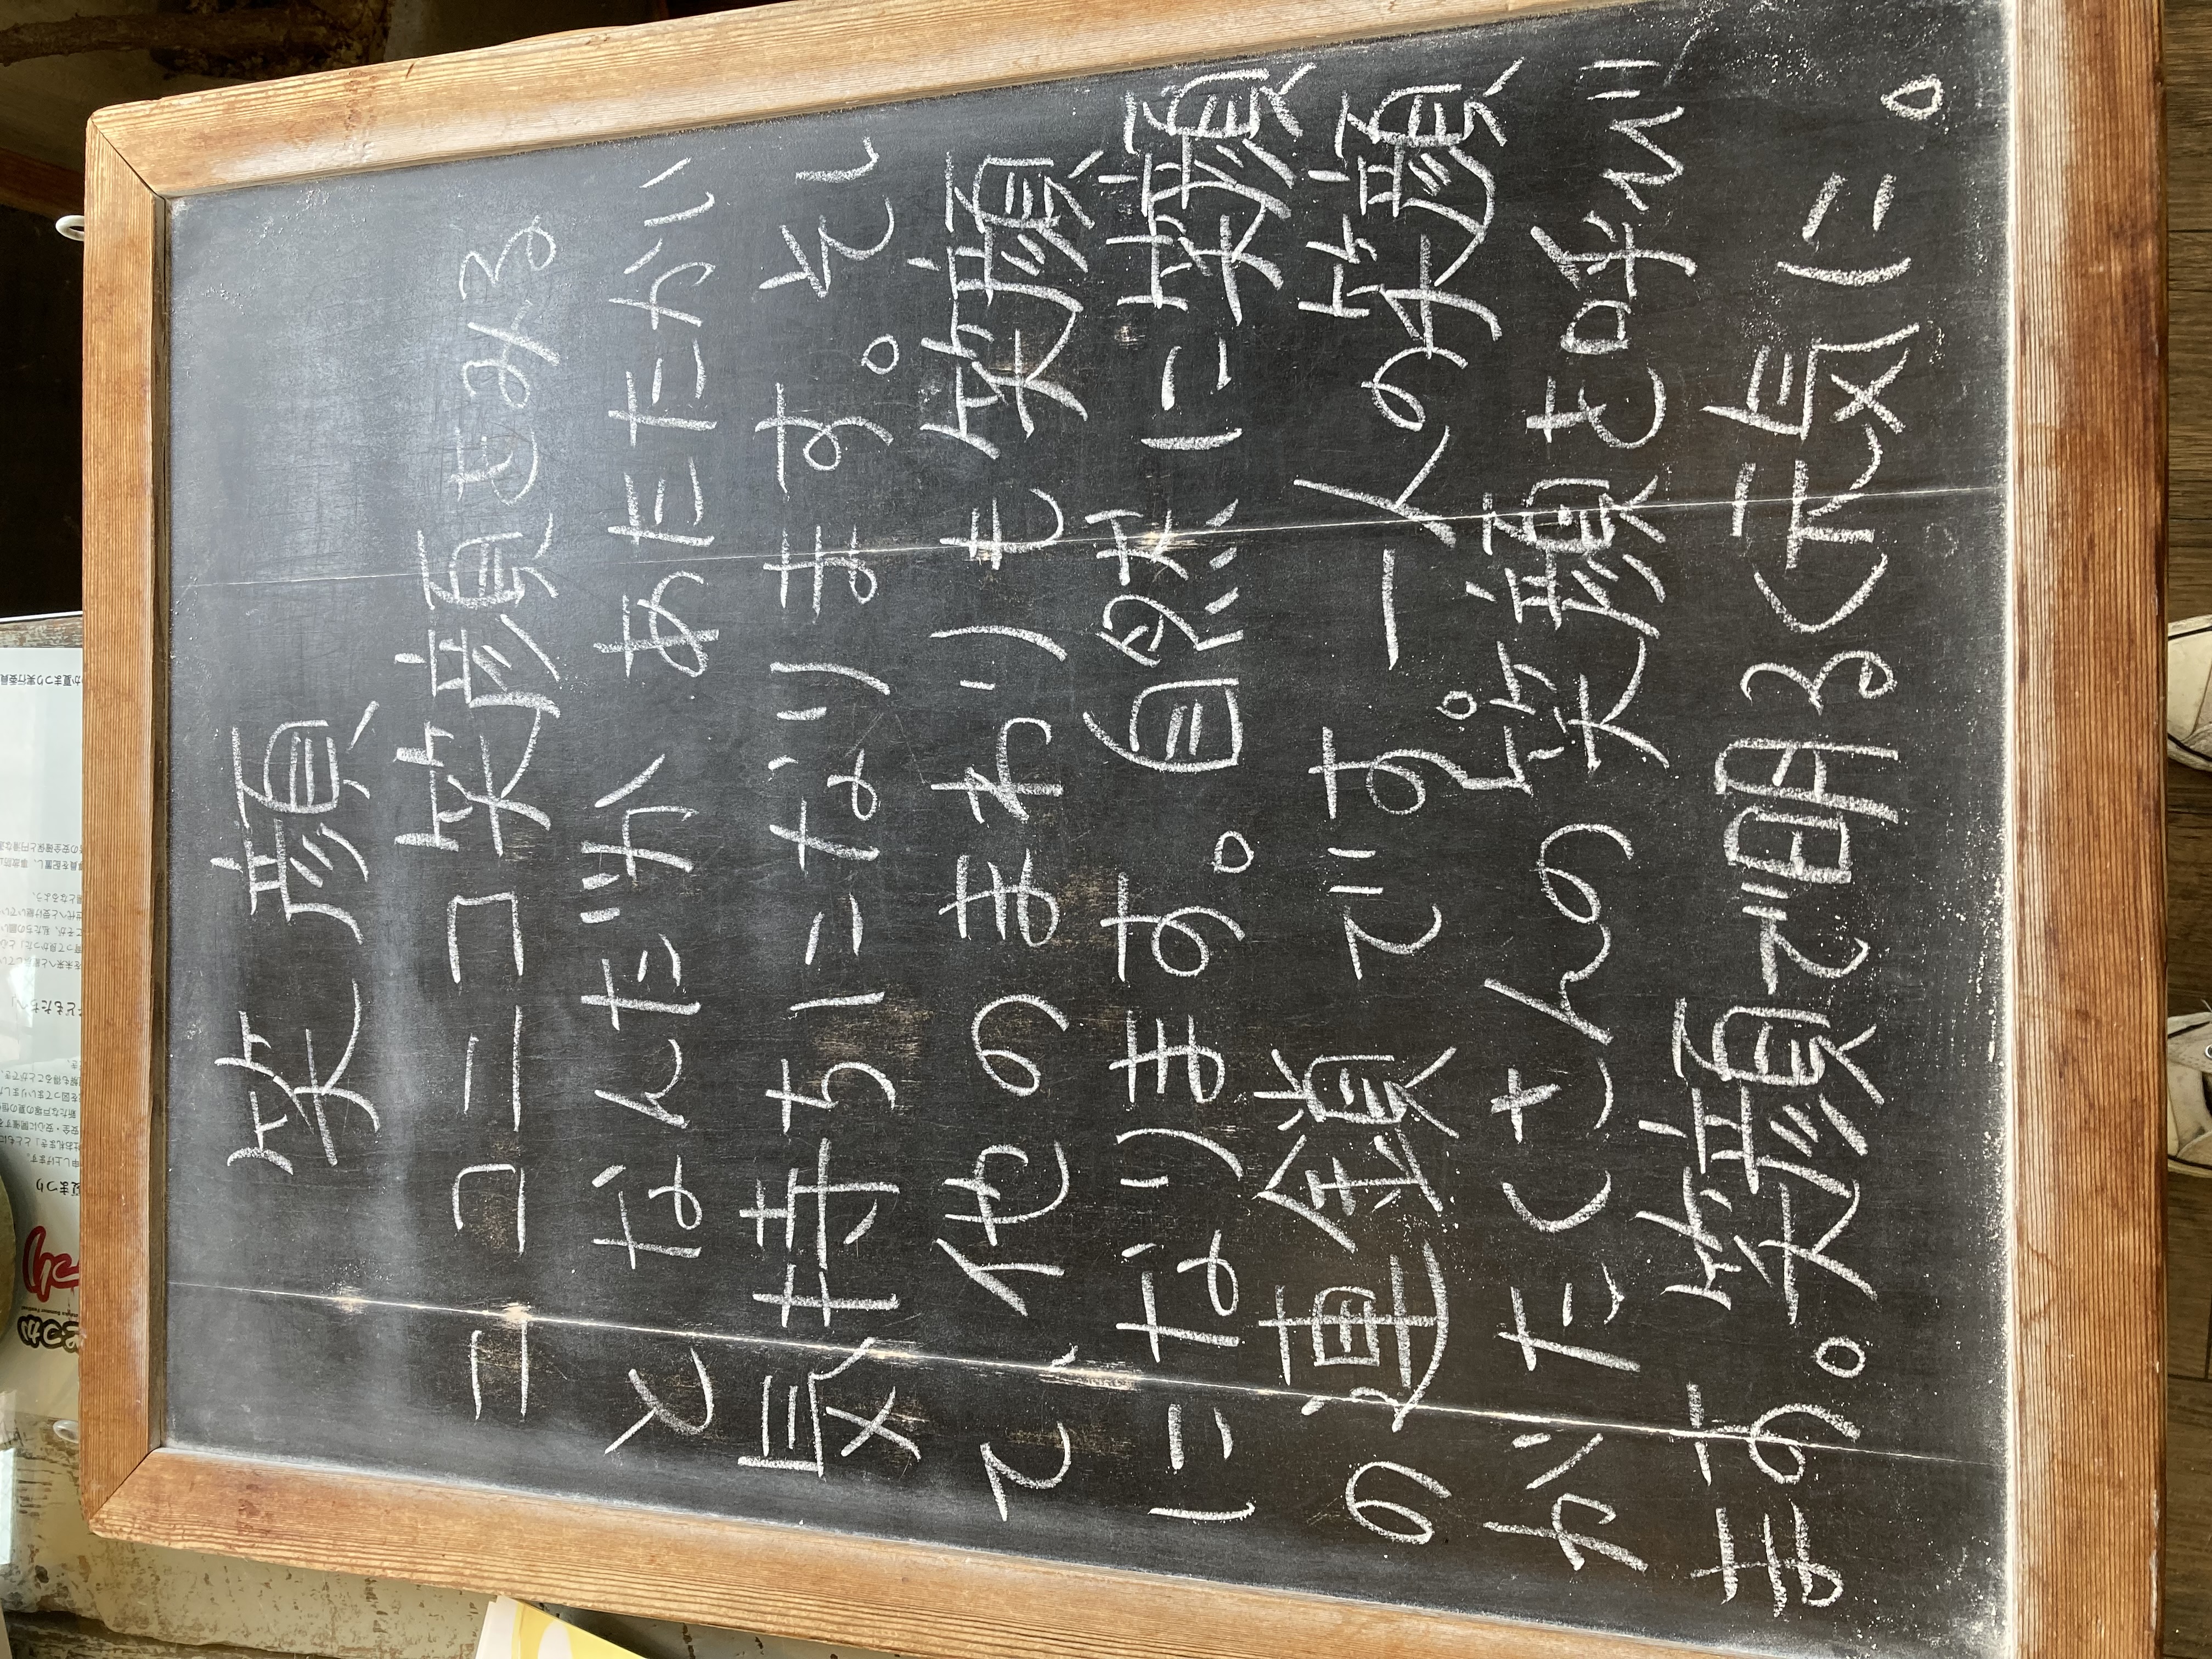 笑顔
ニコニコ笑顔をみる
となんだか あたたかい
気持ちになります。そし
て、他のまわりも笑顔
になります。自然に笑顔
の連鎖です。一人の笑顔
がたくさんの笑顔を呼び
ます。笑顔で明るく元気に。